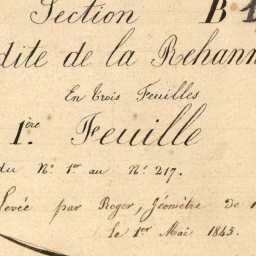 Section B 1
dite de la Rehann
En trois Feuilles
1.ère Feuille
du N.º 1.er au N.º 217.
levée par Roger, Géomètre de 1
Le 1.er Mai 1845.